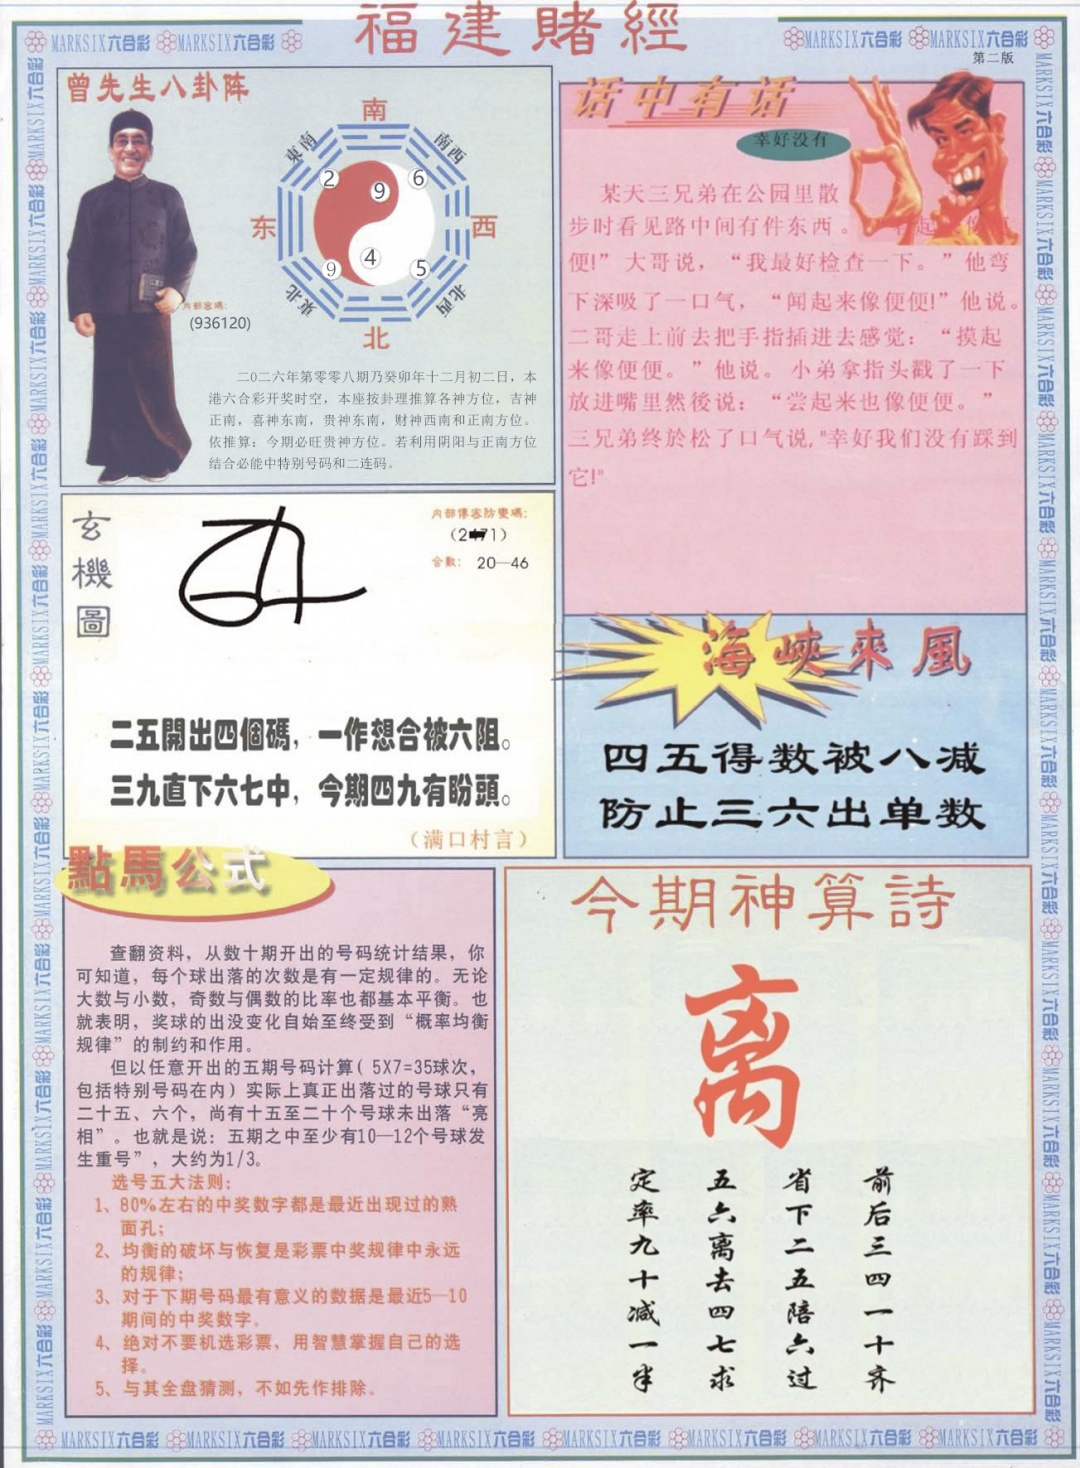 福建賭經
MARKSIX六合彩 MARKSIX六合彩
MARKSIX六合彩 MARKSIX六合彩
第二版
曾先生八卦阵
南
東南
南西
2
9
6
东
西
9
4
5
東北
北西
北
内部密碼:
(936120)
二〇二六年第零零八期乃癸卯年十二月初二日，本
港六合彩开奖时空，本座按卦理推算各神方位，吉神
正南，喜神东南，贵神东南，财神西南和正南方位。
依推算：今期必旺贵神方位。若利用阴阳与正南方位
结合必能中特别号码和二连码。
话中有话
幸好没有
某天三兄弟在公园里散
步时看见路中间有件东西。
便!”大哥说，“我最好检查一下。”他弯
下深吸了一口气，“闻起来像便便!”他说。
二哥走上前去把手指插进去感觉：“摸起
来像便便。”他说。小弟拿指头戳了一下
放进嘴里然後说：“尝起来也像便便。”
三兄弟终於松了口气说,"幸好我们没有踩到
它!"
玄機圖
内部傳密防變碼:
合數: 20—46
二五開出四個碼，一作想合被六阻。
三九直下六七中，今期四九有盼頭。
（满口村言）
海峽來風
四五得数被八减
防止三六出单数
點馬公式
查翻资料，从数十期开出的号码统计结果，你
可知道，每个球出落的次数是有一定规律的。无论
大数与小数，奇数与偶数的比率也都基本平衡。也
就表明，奖球的出没变化自始至终受到“概率均衡
规律”的制约和作用。
但以任意开出的五期号码计算( 5X7=35球次，
包括特别号码在内）实际上真正出落过的号球只有
二十五、六个，尚有十五至二十个号球未出落“亮
相”。也就是说：五期之中至少有10—12个号球发
生重号”，大约为1/3。
选号五大法则：
1、80%左右的中奖数字都是最近出现过的熟
面孔；
2、均衡的破坏与恢复是彩票中奖规律中永远
的规律；
3、对于下期号码最有意义的数据是最近5—10
期间的中奖数字。
4、绝对不要机选彩票，用智慧掌握自己的选
择。
5、与其全盘猜测，不如先作排除。
今期神算詩
离
前后三四一十齐
省下二五陪六过
五六离去四七求
定率九十减一半
MARKSIX六合彩 MARKSIX六合彩 MARKSIX六合彩 MARKSIX六合彩 MARKSIX六合彩 MARKSIX六合彩 MARKSIX六合彩 MARKSIX六合彩